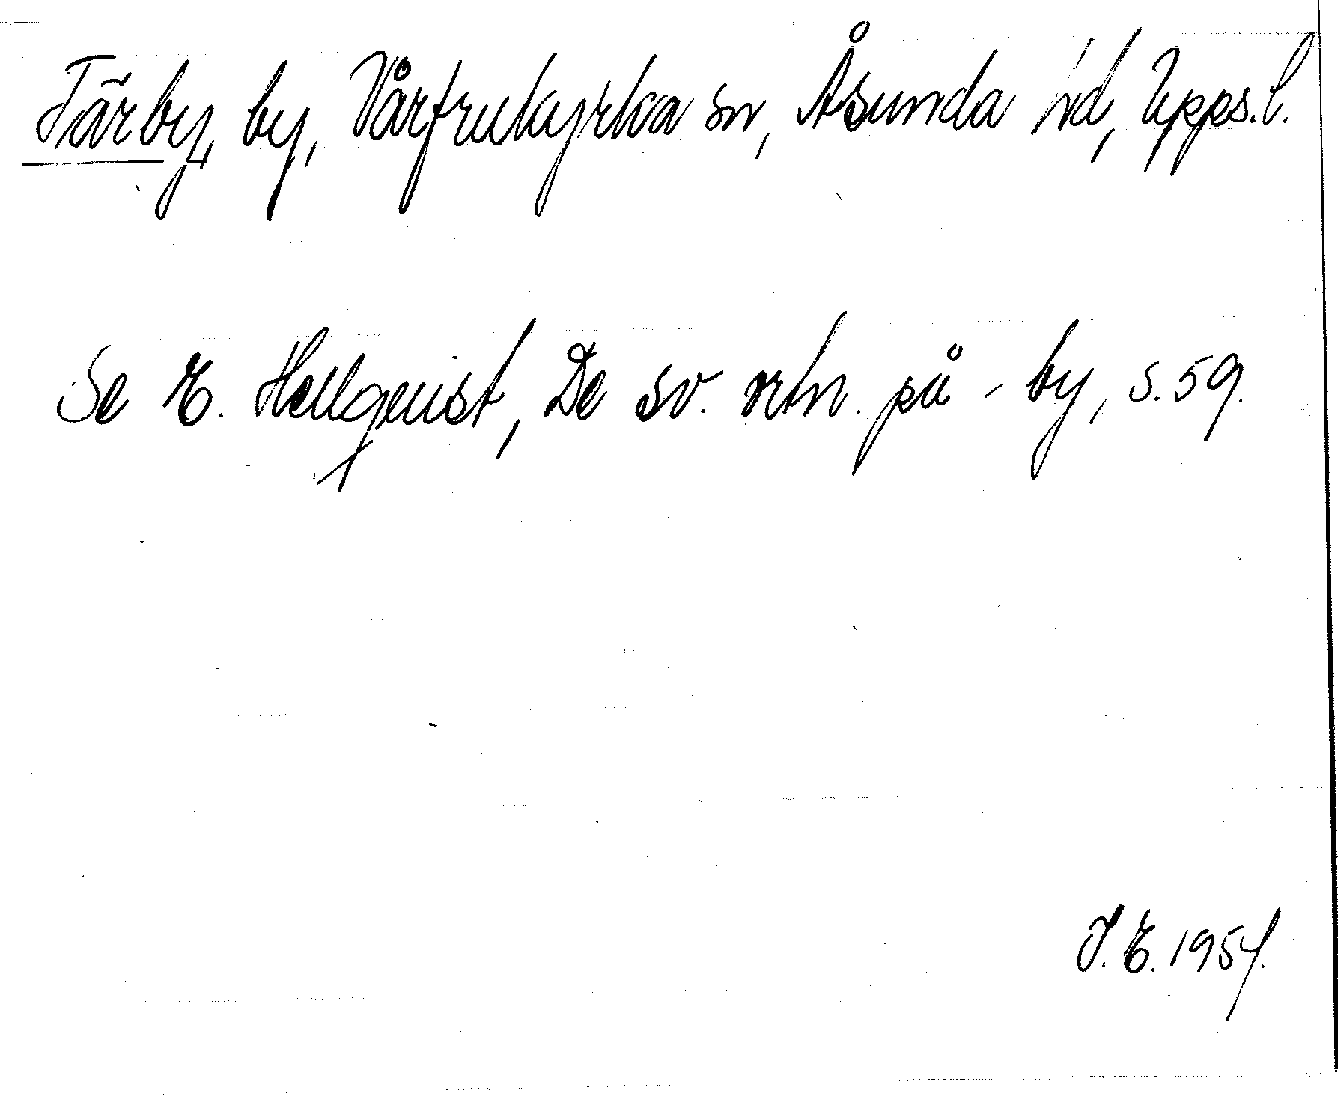 Tärby, by, Vårfrukyrka sn, Åsunda hd, Upps.l.
Se E. Hellquist, De sv. ortn. på -by, s. 59.
J.E. 1954.